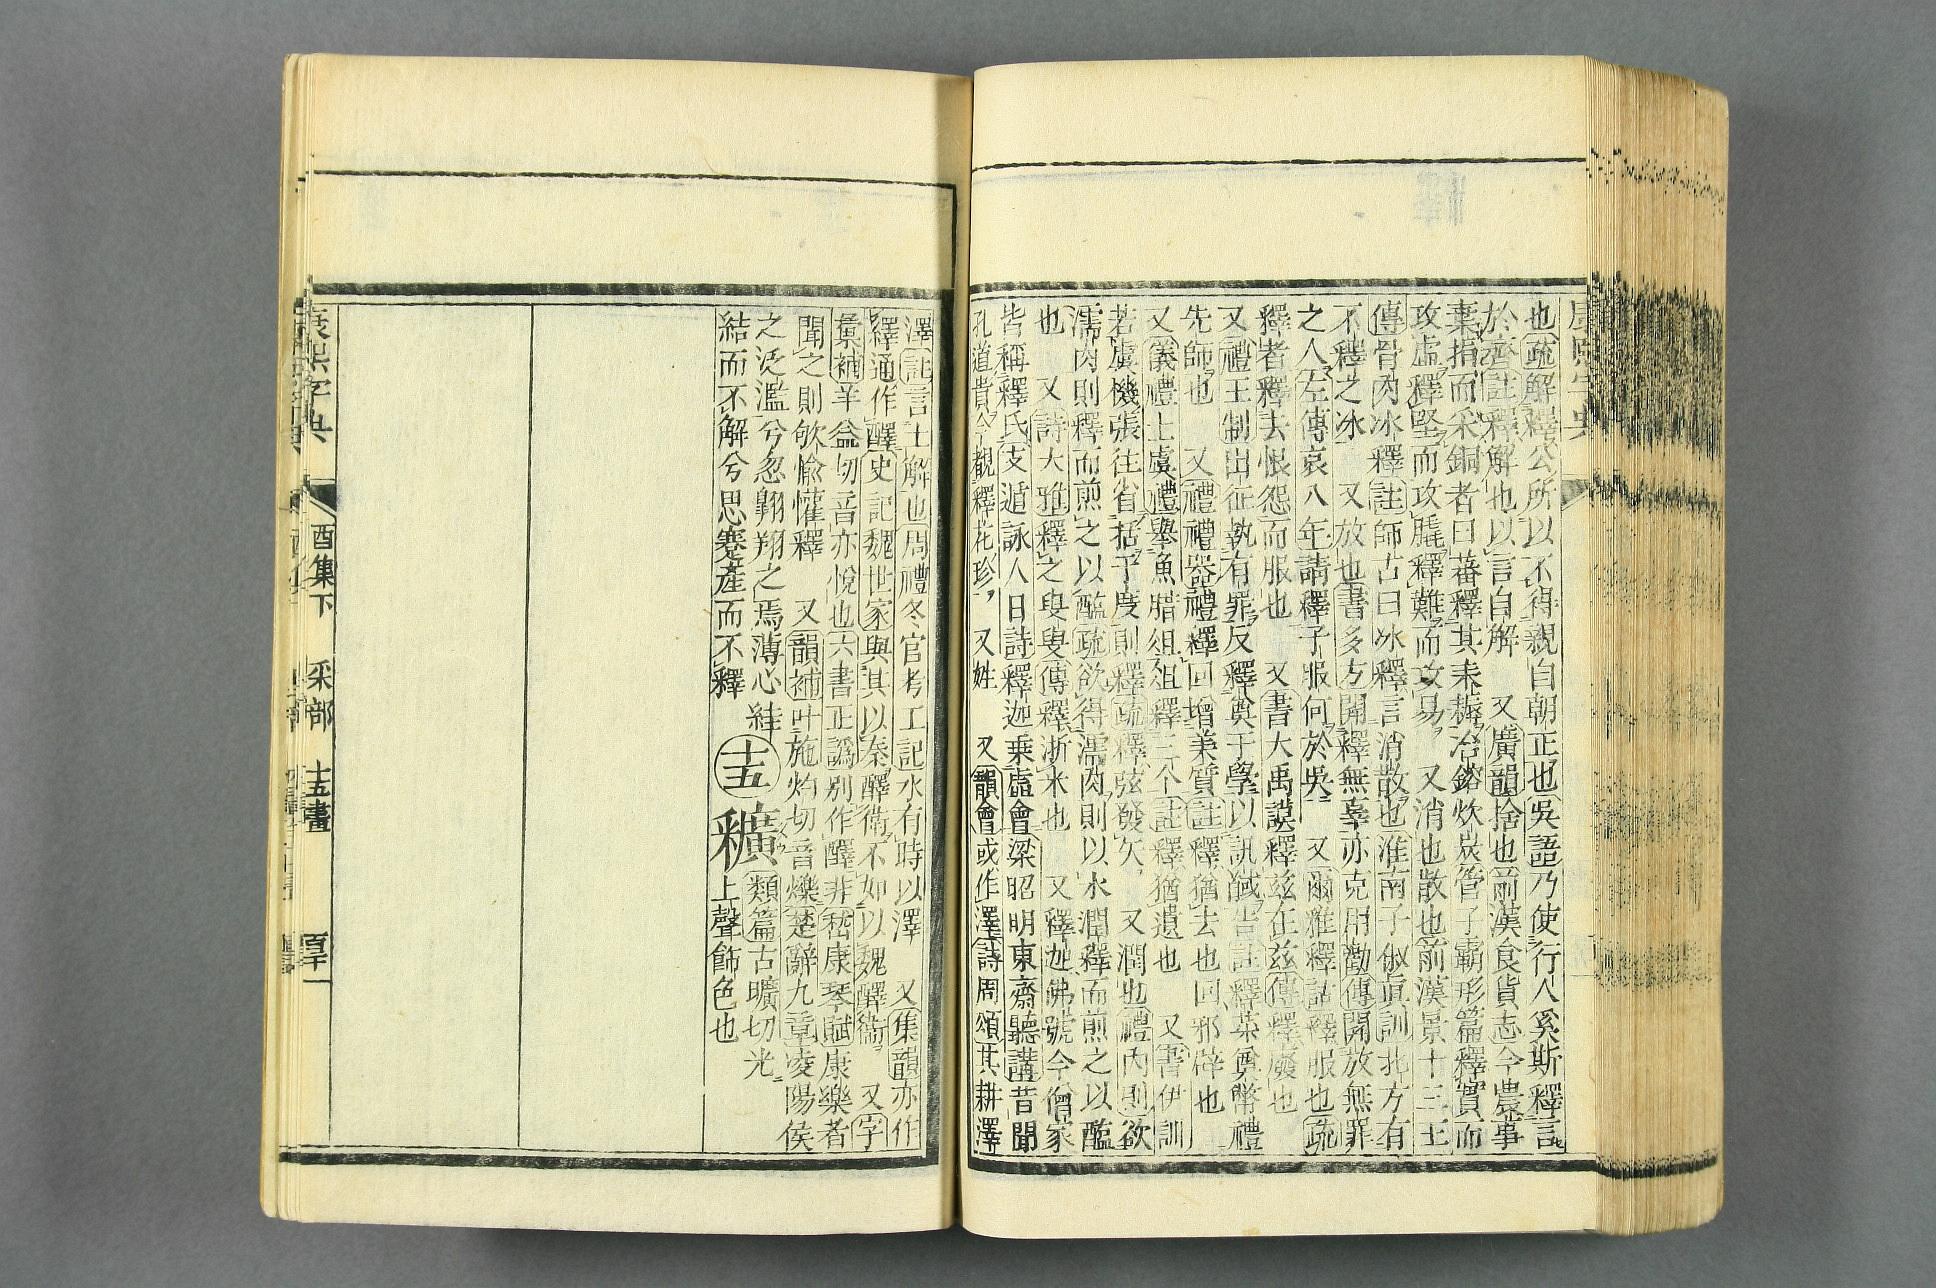 康熙字典
也疏解釋公所以不得親自朝正也吳語乃使行人奚斯釋言
於齊註釋解也以言自解　又廣韻捨也前漢食貨志今農事
棄捐而采銅者日蕃釋其耒耨冶鎔炊炭管子霸形篇釋實而
攻虛釋堅而攻膬釋難而攻易　又消也散也前漢景十三王
傳骨肉冰釋註師古曰冰釋言消散也淮南子俶眞訓北方有
不釋之冰　又放也書多方開釋無辜亦克用勸傳開放無罪
之人左傳哀八年請釋子服何於吳　又爾雅釋詁釋服也疏
釋者釋去恨怨而服也　又書大禹謨釋茲在茲傳釋廢也
又禮王制出征執有罪反釋奠于學以訊馘告註釋菜奠幣禮
先師也　又禮禮器禮釋回增美質註釋猶去也回邪辟也
又儀禮士虞禮舉魚腊俎俎釋三个註釋猶遺也　又書伊訓
若虞機張往省括于度則釋疏釋弦發矢　又潤也禮內則欲
濡肉則釋而煎之以醢疏欲得濡肉則以水潤釋而煎之以醢
也　又詩大雅釋之叟叟傳釋淅米也　又釋迦佛號今僧家
皆稱釋氏支遁詠人日詩釋迦乘虛會梁昭明東齋聽講昔聞
孔道貴今觀釋花珍　又姓　又韻會或作澤詩周頌其耕澤
澤註言土解也周禮冬官考工記水有時以澤　又集韻亦作
繹通作醳史記魏世家與其以秦醳衛不如以魏醳衛　又字
彙補羊益切音亦悅也六書正譌別作醳非嵇康琴賦康樂者
聞之則欨愉懽釋　又韻補叶施灼切音爍楚辭九章凌陽侯
之泛濫兮忽翺翔之焉薄心絓
結而不解兮思蹇產而不釋
十五
類篇古曠切光
上聲飾色也
康熙字典　酉集下　釆部　十五畫